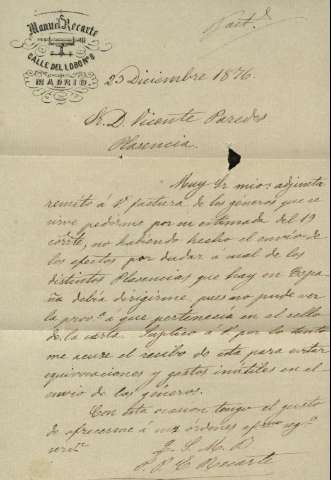 Manuel Recarte
CALLE DEL LOBO Nº 8
MADRID
Fact.ª
25 Diciembre 1876.
S. D. Vicente Paredes
Plasencia.
Muy Sr mio: adjunta
remito á Vd factura de los géneros que se
sirve pedirme por su estimada del 19
corrte, no habiendo hecho el envio de
los efectos por dudar a cual de las
distintas Plasencias que hay en Espa-
ña debia dirigirme, pues no pude ver
la provª a que pertenecia en el sello
de la carta. Suplico á Vd por lo tanto
me acuse el recibo de esta para evitar
equivocaciones y gastos inútiles en el
envio de los géneros.
Con esta ocasion tengo el gusto
de ofrecerme á sus ordenes
Q. S. M. B.
Recarte